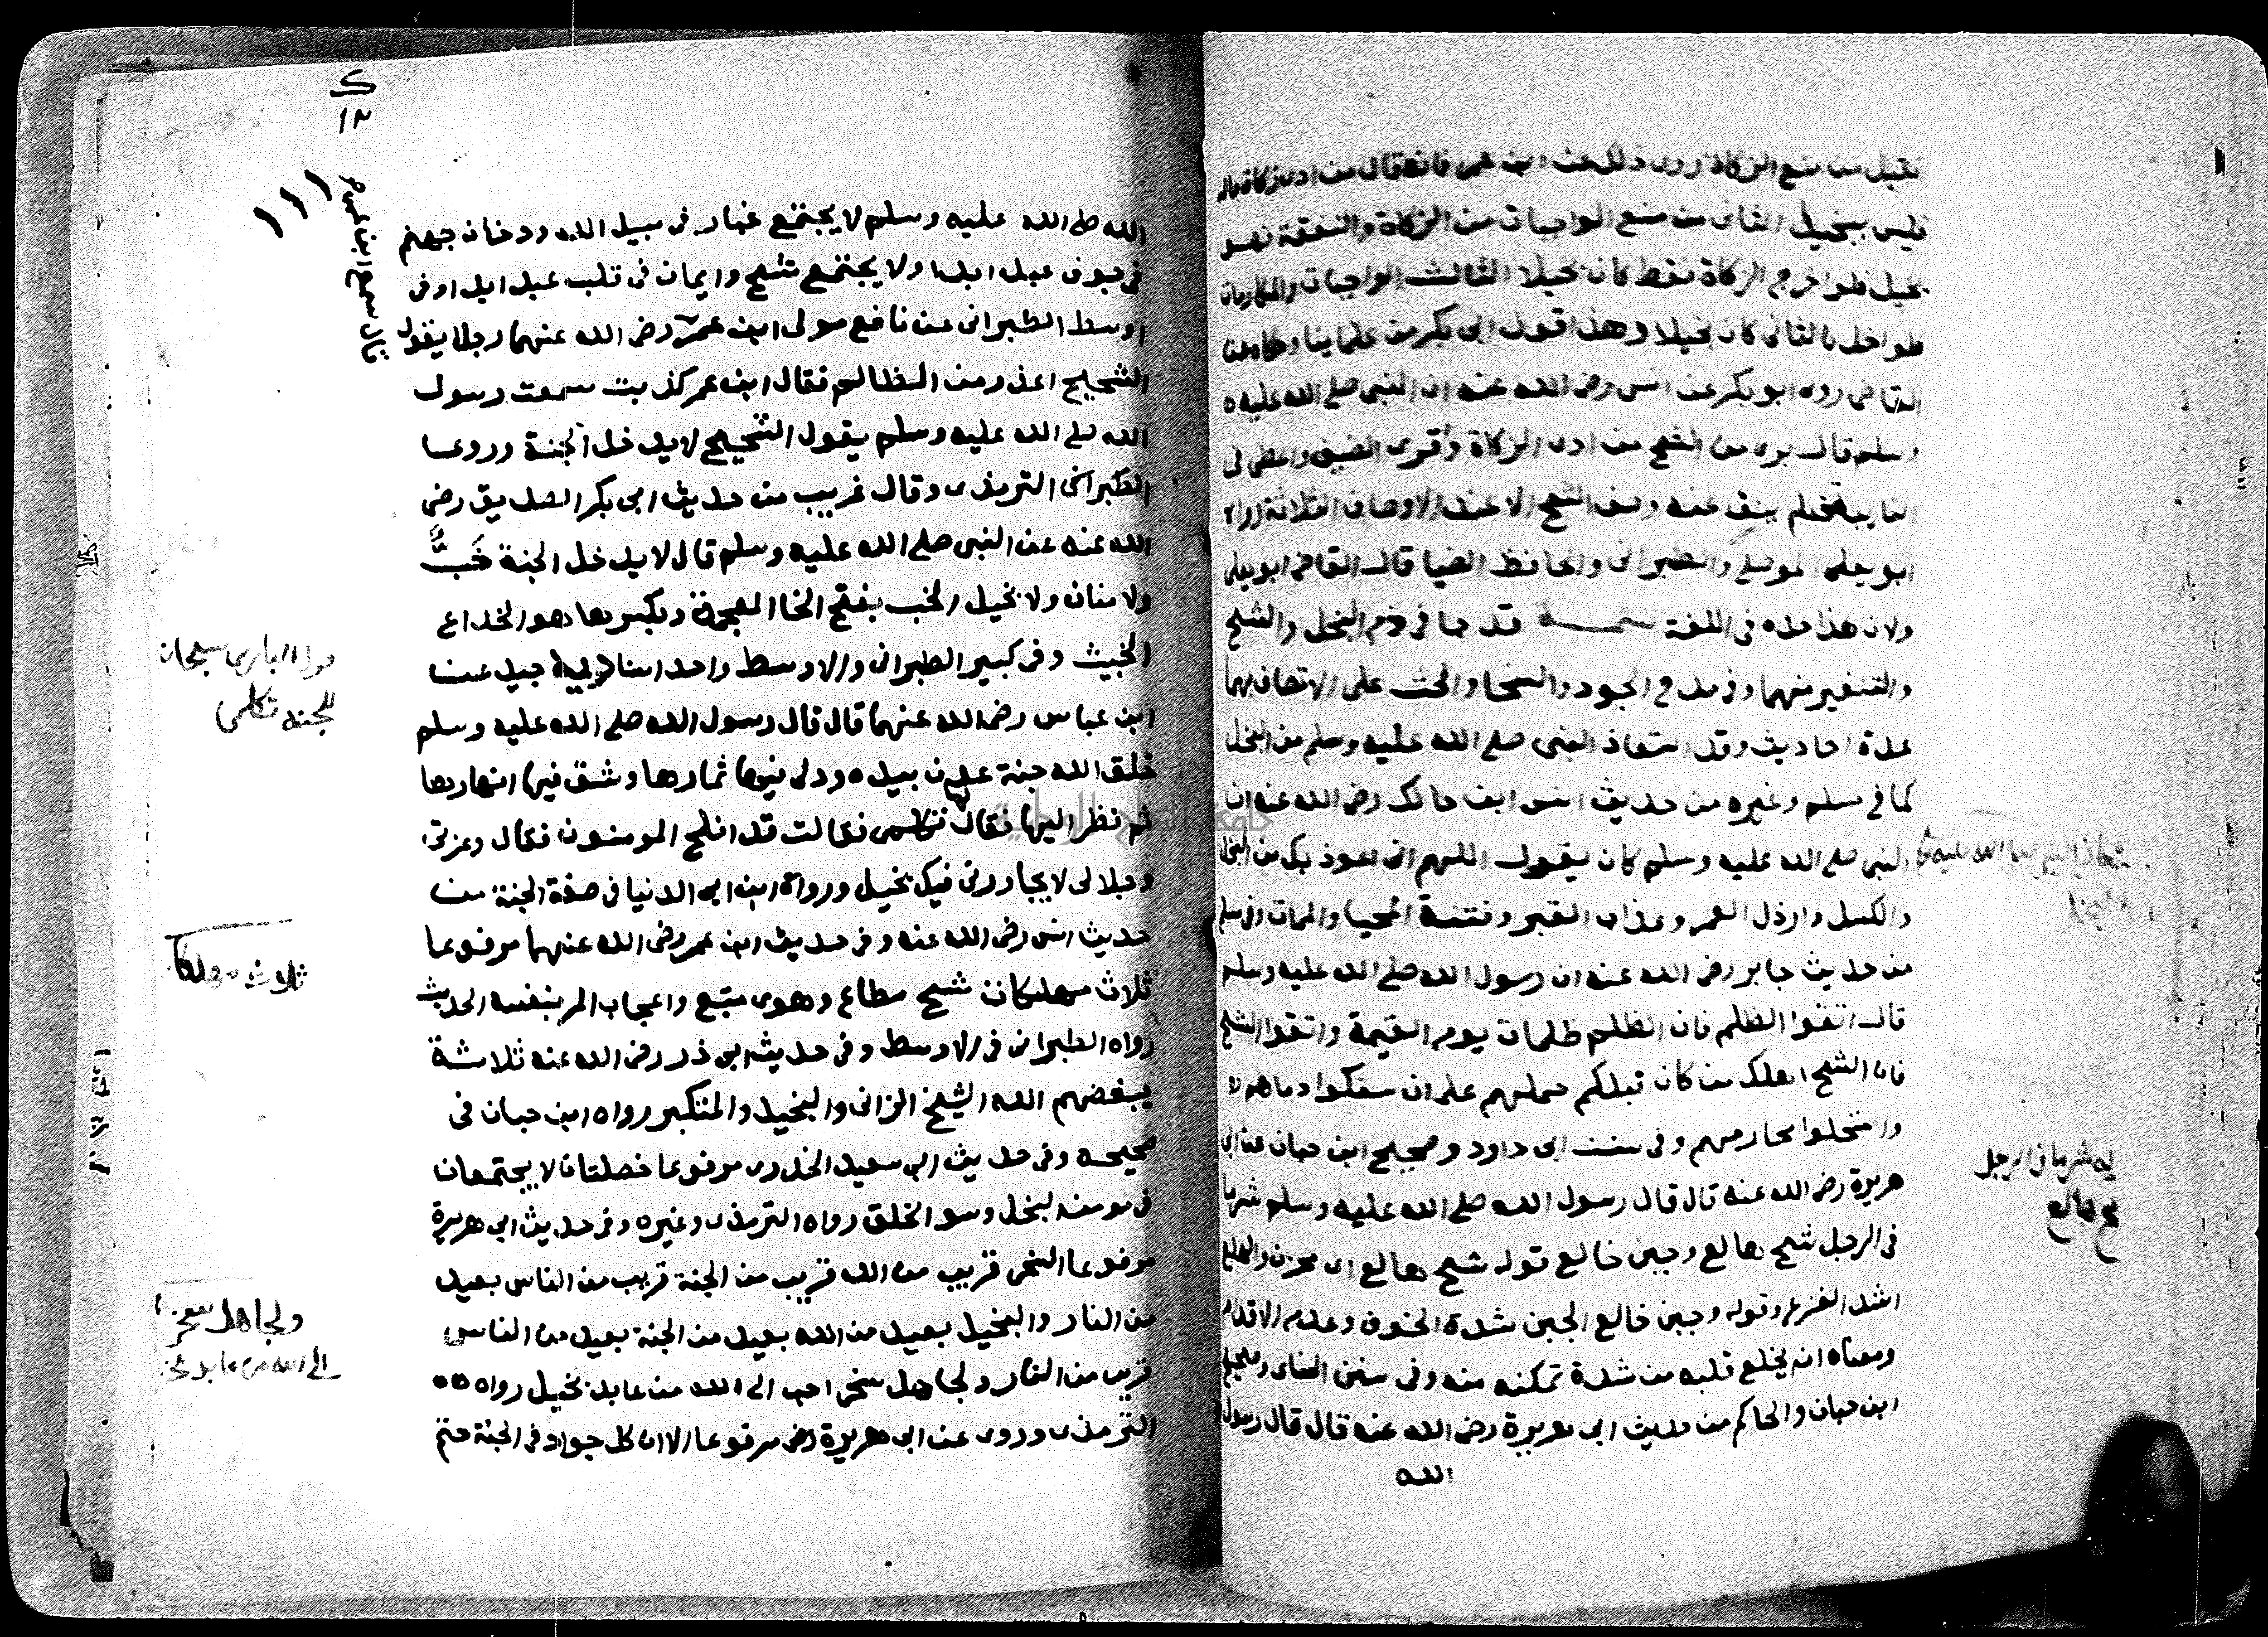 فقيل من منع الزكاة روى ذلك عن ابن عمر فانه قال من ادى زكاة ماله
فليس ببخيل الثانى من منع الواجبات من الزكاة والنفقة فهو
بخيل فلو اخرج الزكاة فقط كان بخيلا الثالث الواجبات والمكارمات
فلو اخل بالثانى كان بخيلا وهذا قول ابى بكر من علماينا وحكاه عنه
القاضى روى ابو بكر عن انس رضى الله عنه ان النبى صلى الله عليه ه
وسلم قال برى من الشح من ادى الزكاة وأقرى الضيف واعطى فى
النايبة فلم ينف عنه وصف الشح الا عند الاوصاف الثلاثة رواه
ابو يعلى الموصلى والطبرانى والحافظ الضيا قال القاضى ابو يعلى
ولان هذا حده فى اللغة تتمـــة قد جا فى ذم البخل والشح
والتنفير منهما وفى مدح الجود والسخا والحث على الاتصاف بهما
عدة احاديث وقد استعاذ النبى صلى الله عليه وسلم من البخل
كما فى مسلم وغيره من حديث انس ابن مالك رضى الله عنه ان
النبى صلى الله عليه وسلم كان يقول اللهم انى اعوذ بك من البخل
والكسل وارذل العمر وعذاب القبر وفتنة المحيا والممات وفى مسلم
من حديث جابر رضى الله عنه ان رسول الله صلى الله عليه وسلم
قال اتقوا الظلم فان الظلم ظلمات يوم القيمة واتقوا الشح
فان الشح اهلك من كان قبلكم حملهم على ان سفكوا دماهم
واستحلوا محارمهم وفى سنن ابى داود وصحيح ابن حبان عن ابى
هريرة رضى الله عنه قال قال رسول الله صلى الله عليه وسلم شر ما
فى الرجل شح هالع وجبن خالع قوله شح هالع اى محزن والهلع
اشد الفزع وقوله وجبن خالع الجبن شدة الخوف وعدم الاقدام
ومعناه انه يخلع قلبه من شدة تمكنه منه وفى سنن النساى وصحيح
ابن حبان والحاكم من حديث ابى هريرة رضى الله عنه قال قال رسول
الله
استعاذ النبى صلى الله عليه
من البخل
شر ما فى الرجل
شح هالع
١٢
١١١
الله صلى الله عليه وسلم لا يجتمع غبار فى سبيل الله ودخان جهنم
فى جوف عبد ابدا ولا يجتمع شح وايمان فى قلب عبد ابدا وفى
اوسط الطبرانى عن نافع مولى ابن عمر رضى الله عنهما رجلا يقول
قال سمع ابن عمر
الشحيح اعذر من الظالم فقال ابن عمر كذبت سمعت رسول
الله صلى الله عليه وسلم يقول الشحيح لا يدخل الجنة وروى
الطبرانى الترمذى وقال غريب من حديث ابى بكر الصديق رضى
الله عنه عن النبى صلى الله عليه وسلم قال لا يدخل الجنة خَبٌّ
ولا منان ولا بخيل الخب بفتح الخا المعجمة وبكسرها هو الخداع
الخبيث وفى كبير الطبرانى والاوسط واحد اسناديه جيد عن
ابن عباس رضى الله عنهما قال قال رسول الله صلى الله عليه وسلم
خلق الله جنة عدن بيده ودلى فيها ثمارها وشق فيها انهارها
ثم نظر اليها فقال لها تكلمى فقالت قد افلح المومنون فقال وعزتى
وجلالى لا يجاورنى فيك بخيل ورواه ابن ابى الدنيا فى صفة الجنة من
حديث انس رضى الله عنه وفى حديث ابن عمر رضى الله عنهما مرفوعا
ثلاث مهلكات شح مطاع وهوى متبع واعجاب المر بنفسه الحديث
رواه الطبرانى فى الاوسط وفى حديث ابى ذر رضى الله عنه ثلاثة
يبغضهم الله الشيخ الزانى والبخيل والمتكبر رواه ابن حبان فى
صحيحه وفى حديث ابى سعيد الخدرى مرفوعا خصلتان لا يجتمعان
فى مومن البخل وسو الخلق رواه الترمذى وغيره وفى حديث ابى هريرة
مرفوعا السخى قريب من الله قريب من الجنة قريب من الناس بعيد
من النار والبخيل بعيد من الله بعيد من الجنة بعيد من الناس
قريب من النار ولجاهل سخى احب الى الله من عابد بخيل رواه
الترمذى وروى عن ابى هريرة رضى مرفوعا الا ان كل جواد فى الجنة حتم
قول البارى سبحانه
للجنة تكلمى
ثلاث مهلكات
ولجاهل سخى
الى الله من عابد